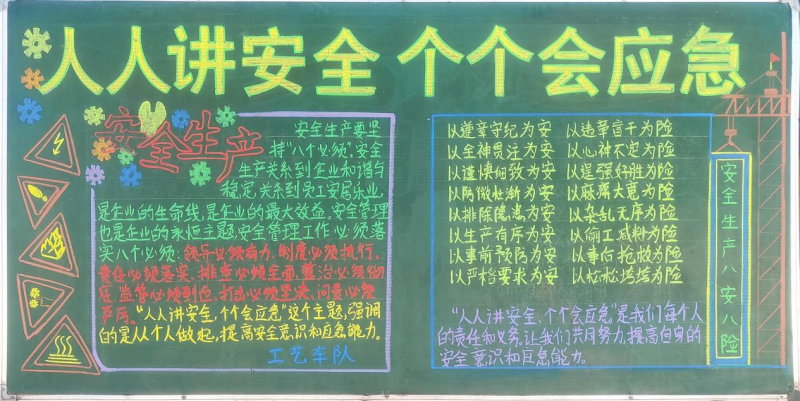 人人讲安全 个个会应急
安全生产
安全生产要坚
持“八个必须”，安全
生产关系到企业和谐与
稳定，关系到员工安居乐业，
是企业的生命线，是企业的最大效益，安全管理
也是企业的永恒主题，安全管理工作必须落
实八个必须：领导必须有力，制度必须执行，
责任必须落实，排查必须全面，整治必须彻
底，监管必须到位，打击必须坚决，问责必须
严厉。“人人讲安全，个个会应急”这个主题，强调
的是从个人做起，提高安全意识和应急能力。
工艺车队
以遵章守纪为安 以违章盲干为险
以全神贯注为安 以心神不定为险
以谨慎细致为安 以逞强好胜为险
以防微杜渐为安 以麻痹大意为险
以排除隐患为安 以杂乱无序为险
以生产有序为安 以偷工减料为险
以事前预防为安 以事后抢救为险
以严格要求为安 以松松垮垮为险
“人人讲安全，个个会应急”是我们每个人
的责任和义务。让我们共同努力，提高自身的
安全意识和应急能力。
安全生产八安八险